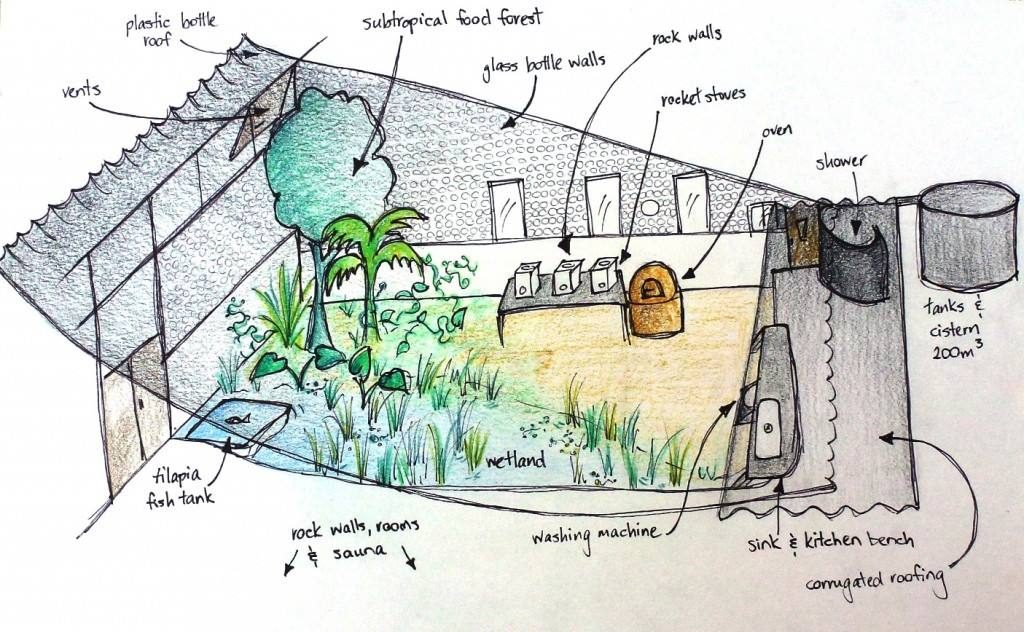 plastic bottle
roof
subtropical food forest
vents
glass bottle walls
rock walls
rocket stoves
oven
shower
tanks &
cistern
200m³
tilapia
fish tank
wetland
rock walls, rooms
& sauna
washing machine
sink & kitchen bench
corrugated roofing